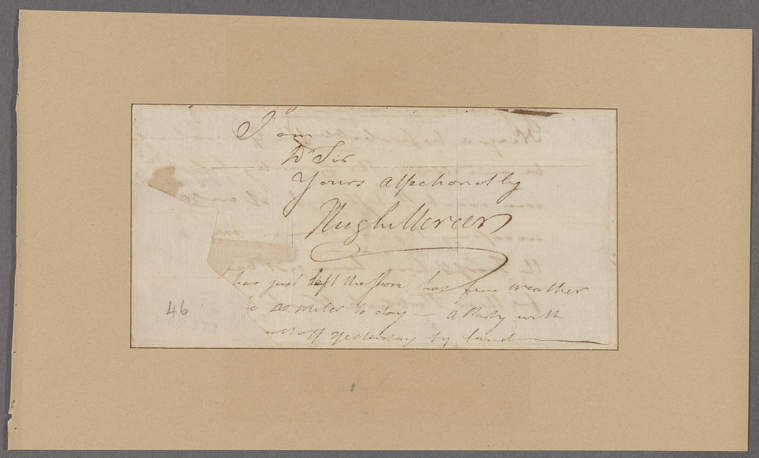 I am
Dr Sir
Yours affectionately
Hugh Mercer
has just left the shore has fine weather
20 miles to day — a Party with
set off yesterday by land
46